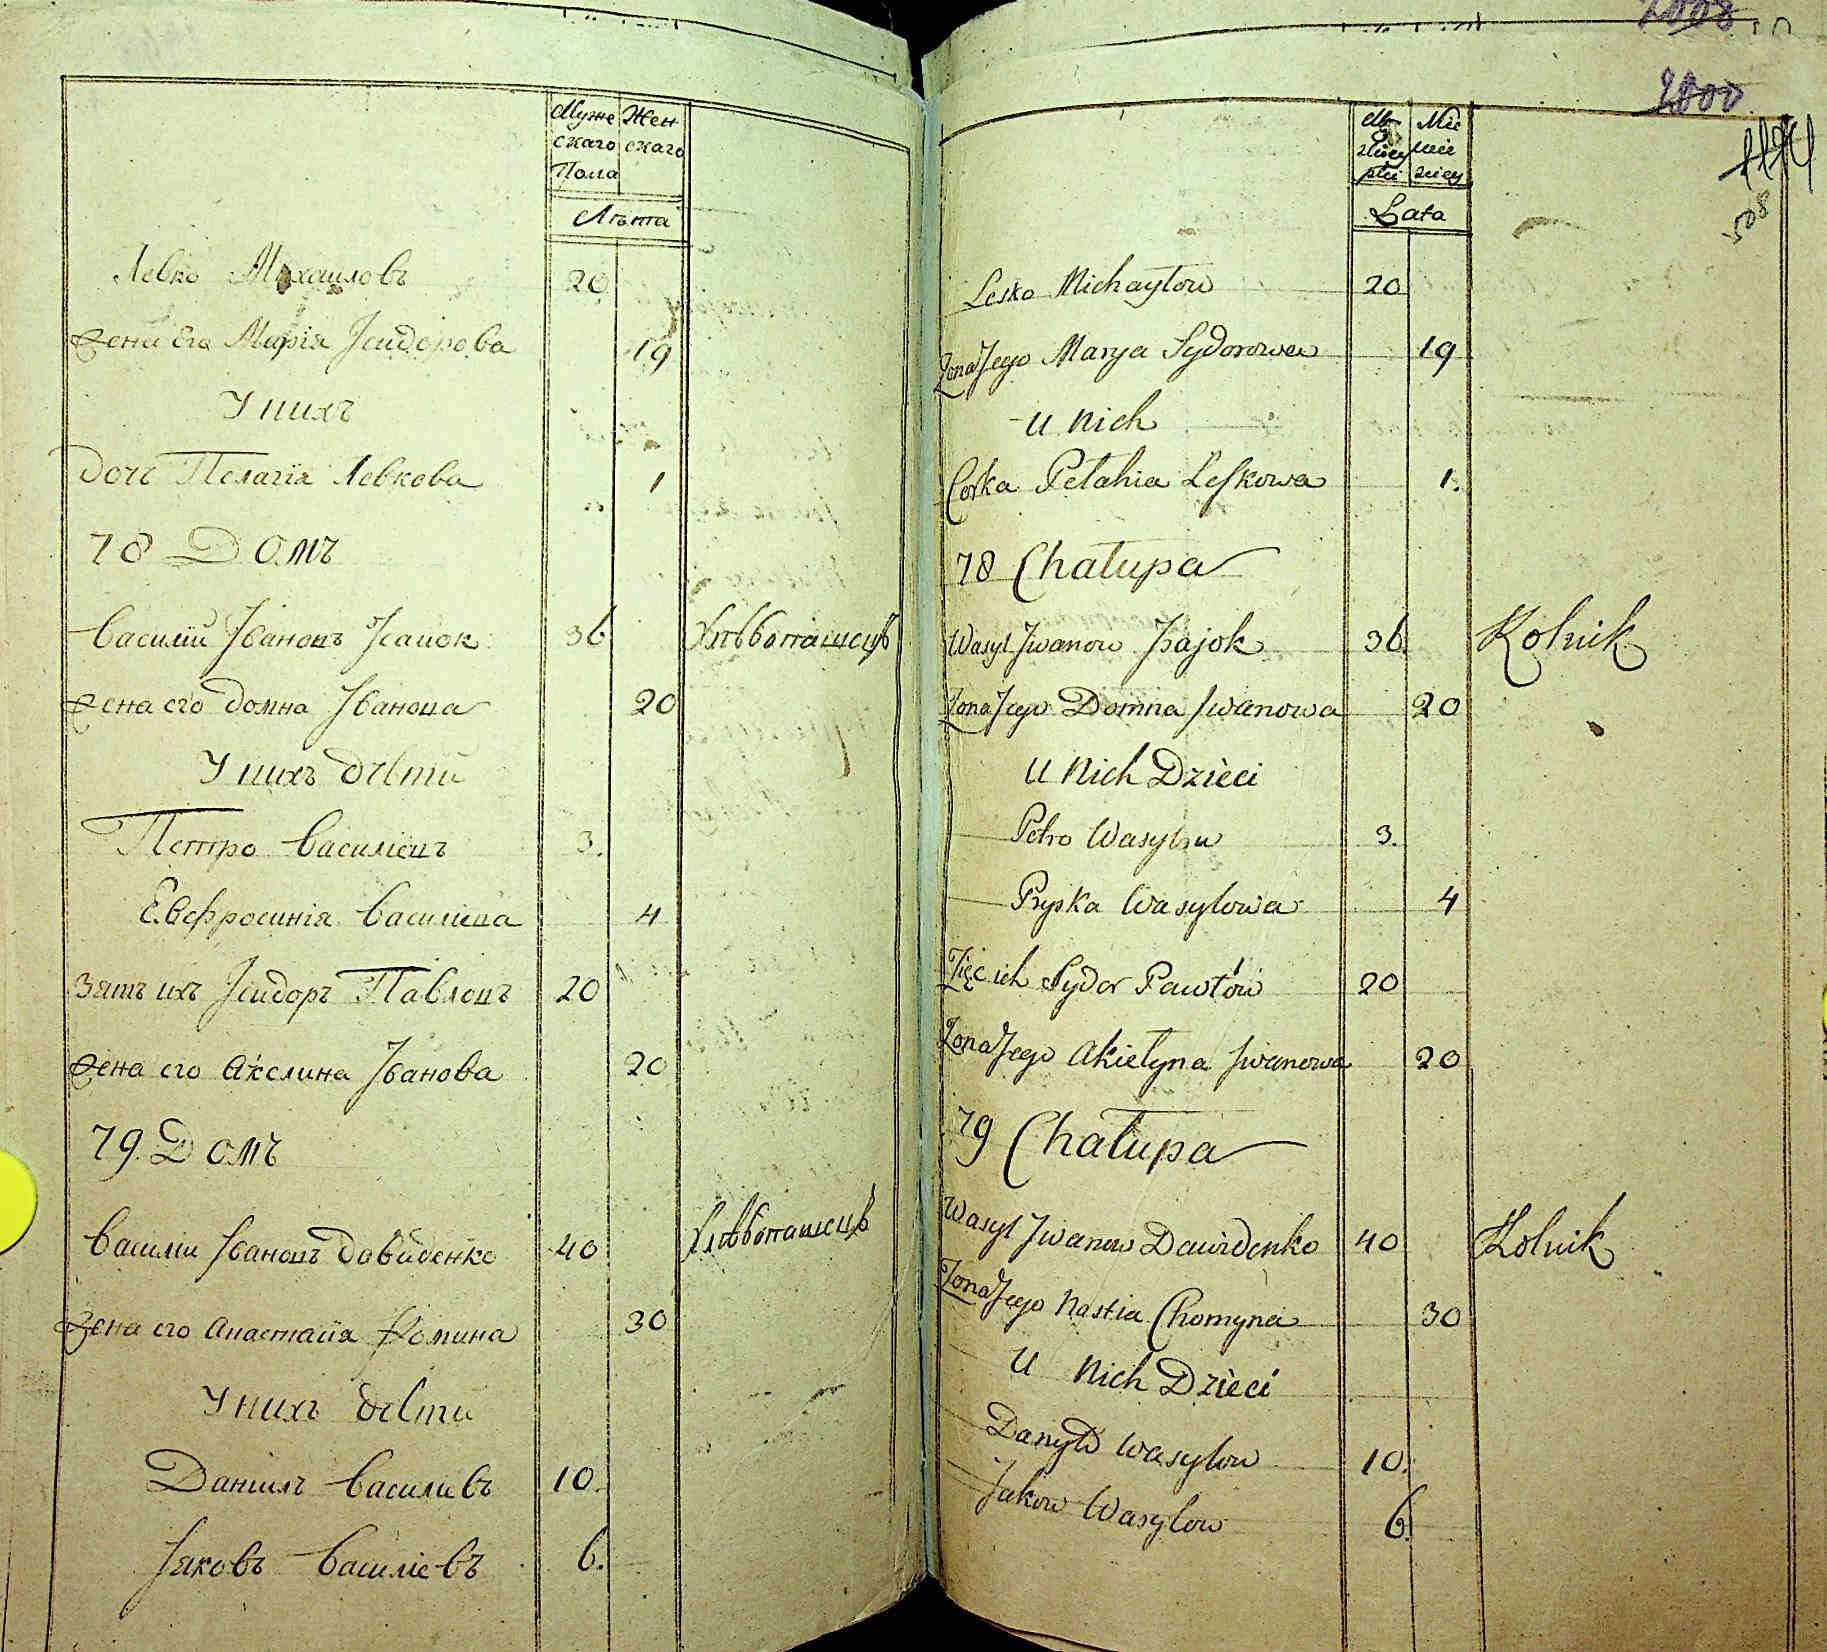 Муже Жен
скаго скаго
Пола
Лѣта
Левко Михаиловъ 20
Жена Его Марія Ісидорова 19
У нихъ
Дочь Пелагія Левкова 1
78 Домъ
Василій Івановъ Ісаиок 36 Хлѣбопашецъ
Жена его Домна Іванова 20
У нихъ дѣти
Петро Василіевъ 3.
Евфросинія Василіева 4
Зять ихъ Ісидоръ Павловъ 20
Жена его Акелина Іванова 20
79. Домъ
Василіи Івановъ Давиденко 40 Хлѣбопашецъ
Жена его Анастасія Фомина 30
У нихъ дѣти
Даніилъ Василиевъ 10.
Іяковъ Василіевъ 6.
2008
2000
508
Lata
Lesko Michayłow 20
Żona Jego Marya Sydorowa 19
U Nich
Corka Pełahia Leskowa 1.
78 Chałupa
Wasyl Jwanow Jsajok 36. Rolnik
Żona Jego Domna Jwanowa 20
U Nich Dzieci
Petro Wasylow 3.
Pryska Wasylowa 4
Zięc ich Sydor Pawłów 20
Żona Jego Akiełyna Jwanowa 20
79 Chałupa
Wasyl Jwanow Dawidenko 40 Rolnik
Żona Jego Nastia Chomyna 30
U Nich Dzieci
Danyło Wasylow 10.
Jakow Wasylow 6.